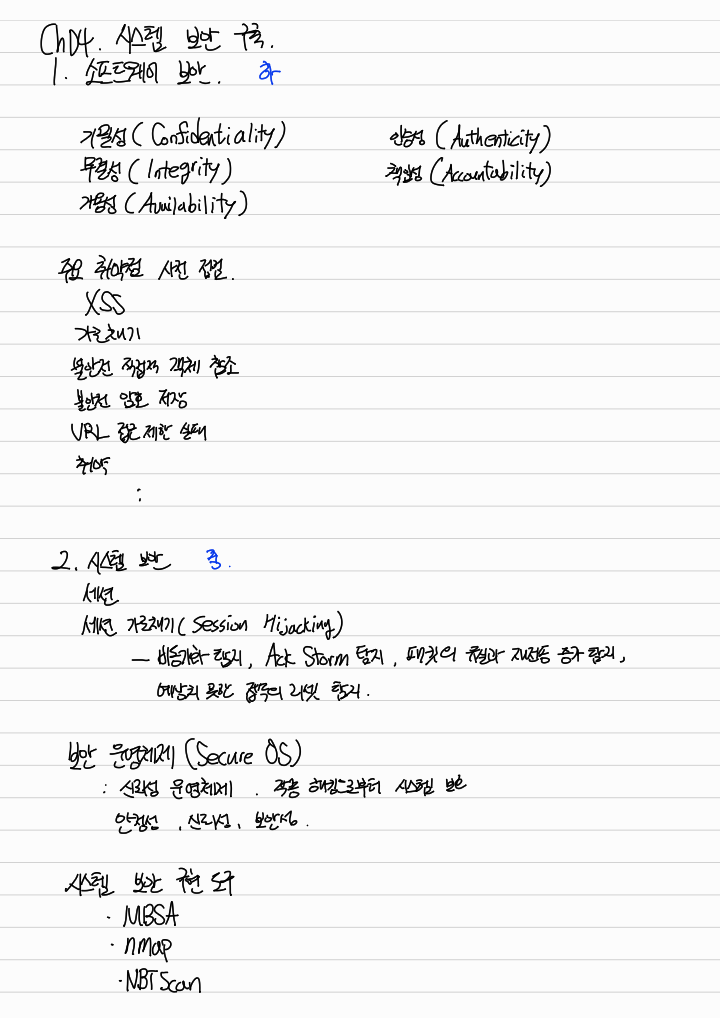 Ch04. 시스템 보안 구축.
1. 소프트웨어 보안. 하
기밀성 (Confidentiality) 인증성 (Authenticity)
무결성 (Integrity) 책임성 (Accountability)
가용성 (Availability)
주요 취약점 사전 점검.
XSS
가로채기
불안전 직접적 객체 참조
불안전 암호 저장
URL 접근 제한 실패
취약
:
2. 시스템 보안 중.
세션
세션 가로채기 (Session Hijacking)
— 비동기화 탐지, Ack Storm 탐지, 패킷의 유실과 재전송 증가 탐지,
예상치 못한 접속의 리셋 탐지.
보안 운영체제 (Secure OS)
: 신뢰성 운영체제. 각종 해킹으로부터 시스템 보호
안정성, 신뢰성, 보안성.
시스템 보안 구현 도구
· MBSA
· nmap
· NBTScan